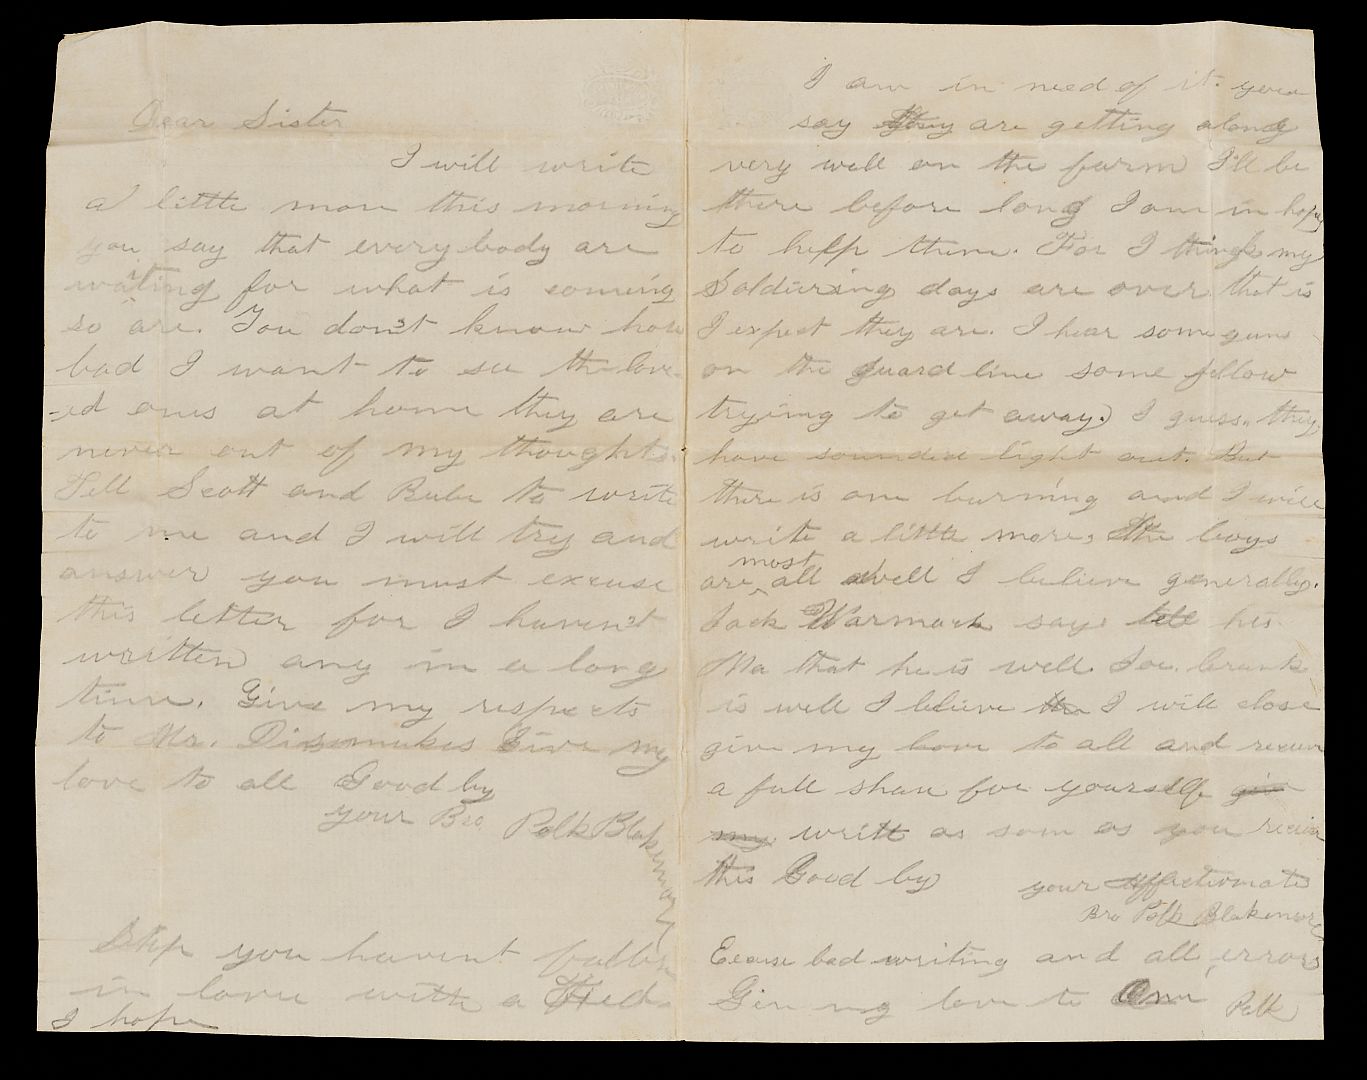 Dear Sister
I will write
a little more this morning
you say that every body are
waiting for what is coming
so are. You don't know how
bad I want to see the love
-ed ones at home they are
never out of my thoughts.
Tell Scott and Bube to write
to me and I will try and
answer you must excuse
this letter for I haven't
written any in a long
time. Give my respects
to Mr. Dismukes Give my
love to all Good by
your Bro Polk Blakemore
Stop you havent fallen
in love with a Fed.
I hope
I am in need of it. you
say they are getting along
very well on the farm I'll be
there before long I am in hopes
to help them. For I think my
Soldiering days are over that is
I expect they are. I hear some guns
on the guard line some fellow
trying to get away. I guess. they
have sounded light out. But
there is one burning and I will
write a little more, the boys
are most all well I believe generally.
Jack Warmack says tell his
Ma that he is well. Joe
is well I believe the I will close
give my love to all and receive
a full share for yourself give
my write as soon as you receive
this Good by
your affectionate
Bro Polk Blakemore
Excuse bad writing and all errors
Give my love to Polk